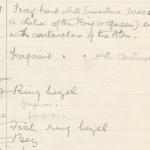 Frag hard white limestone brace
a statue of the King or Queen) en
with cartouches of the Aten.
Fragment . . with cartouc
Ring bezel
Fish ring bezel
Bez